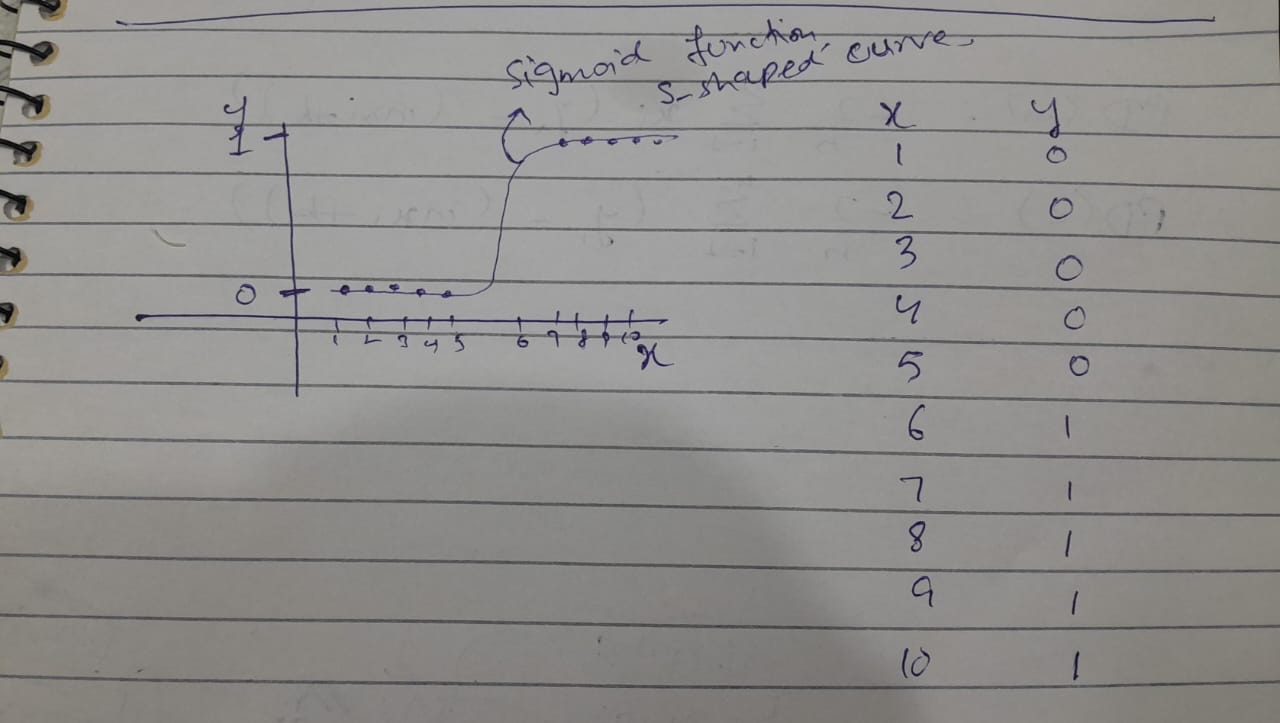 sigmoid function
s-shaped curve
y
1
0
1 2 3 4 5 6 7 8 9 10
x
x y
1 0
2 0
3 0
4 0
5 0
6 1
7 1
8 1
9 1
10 1